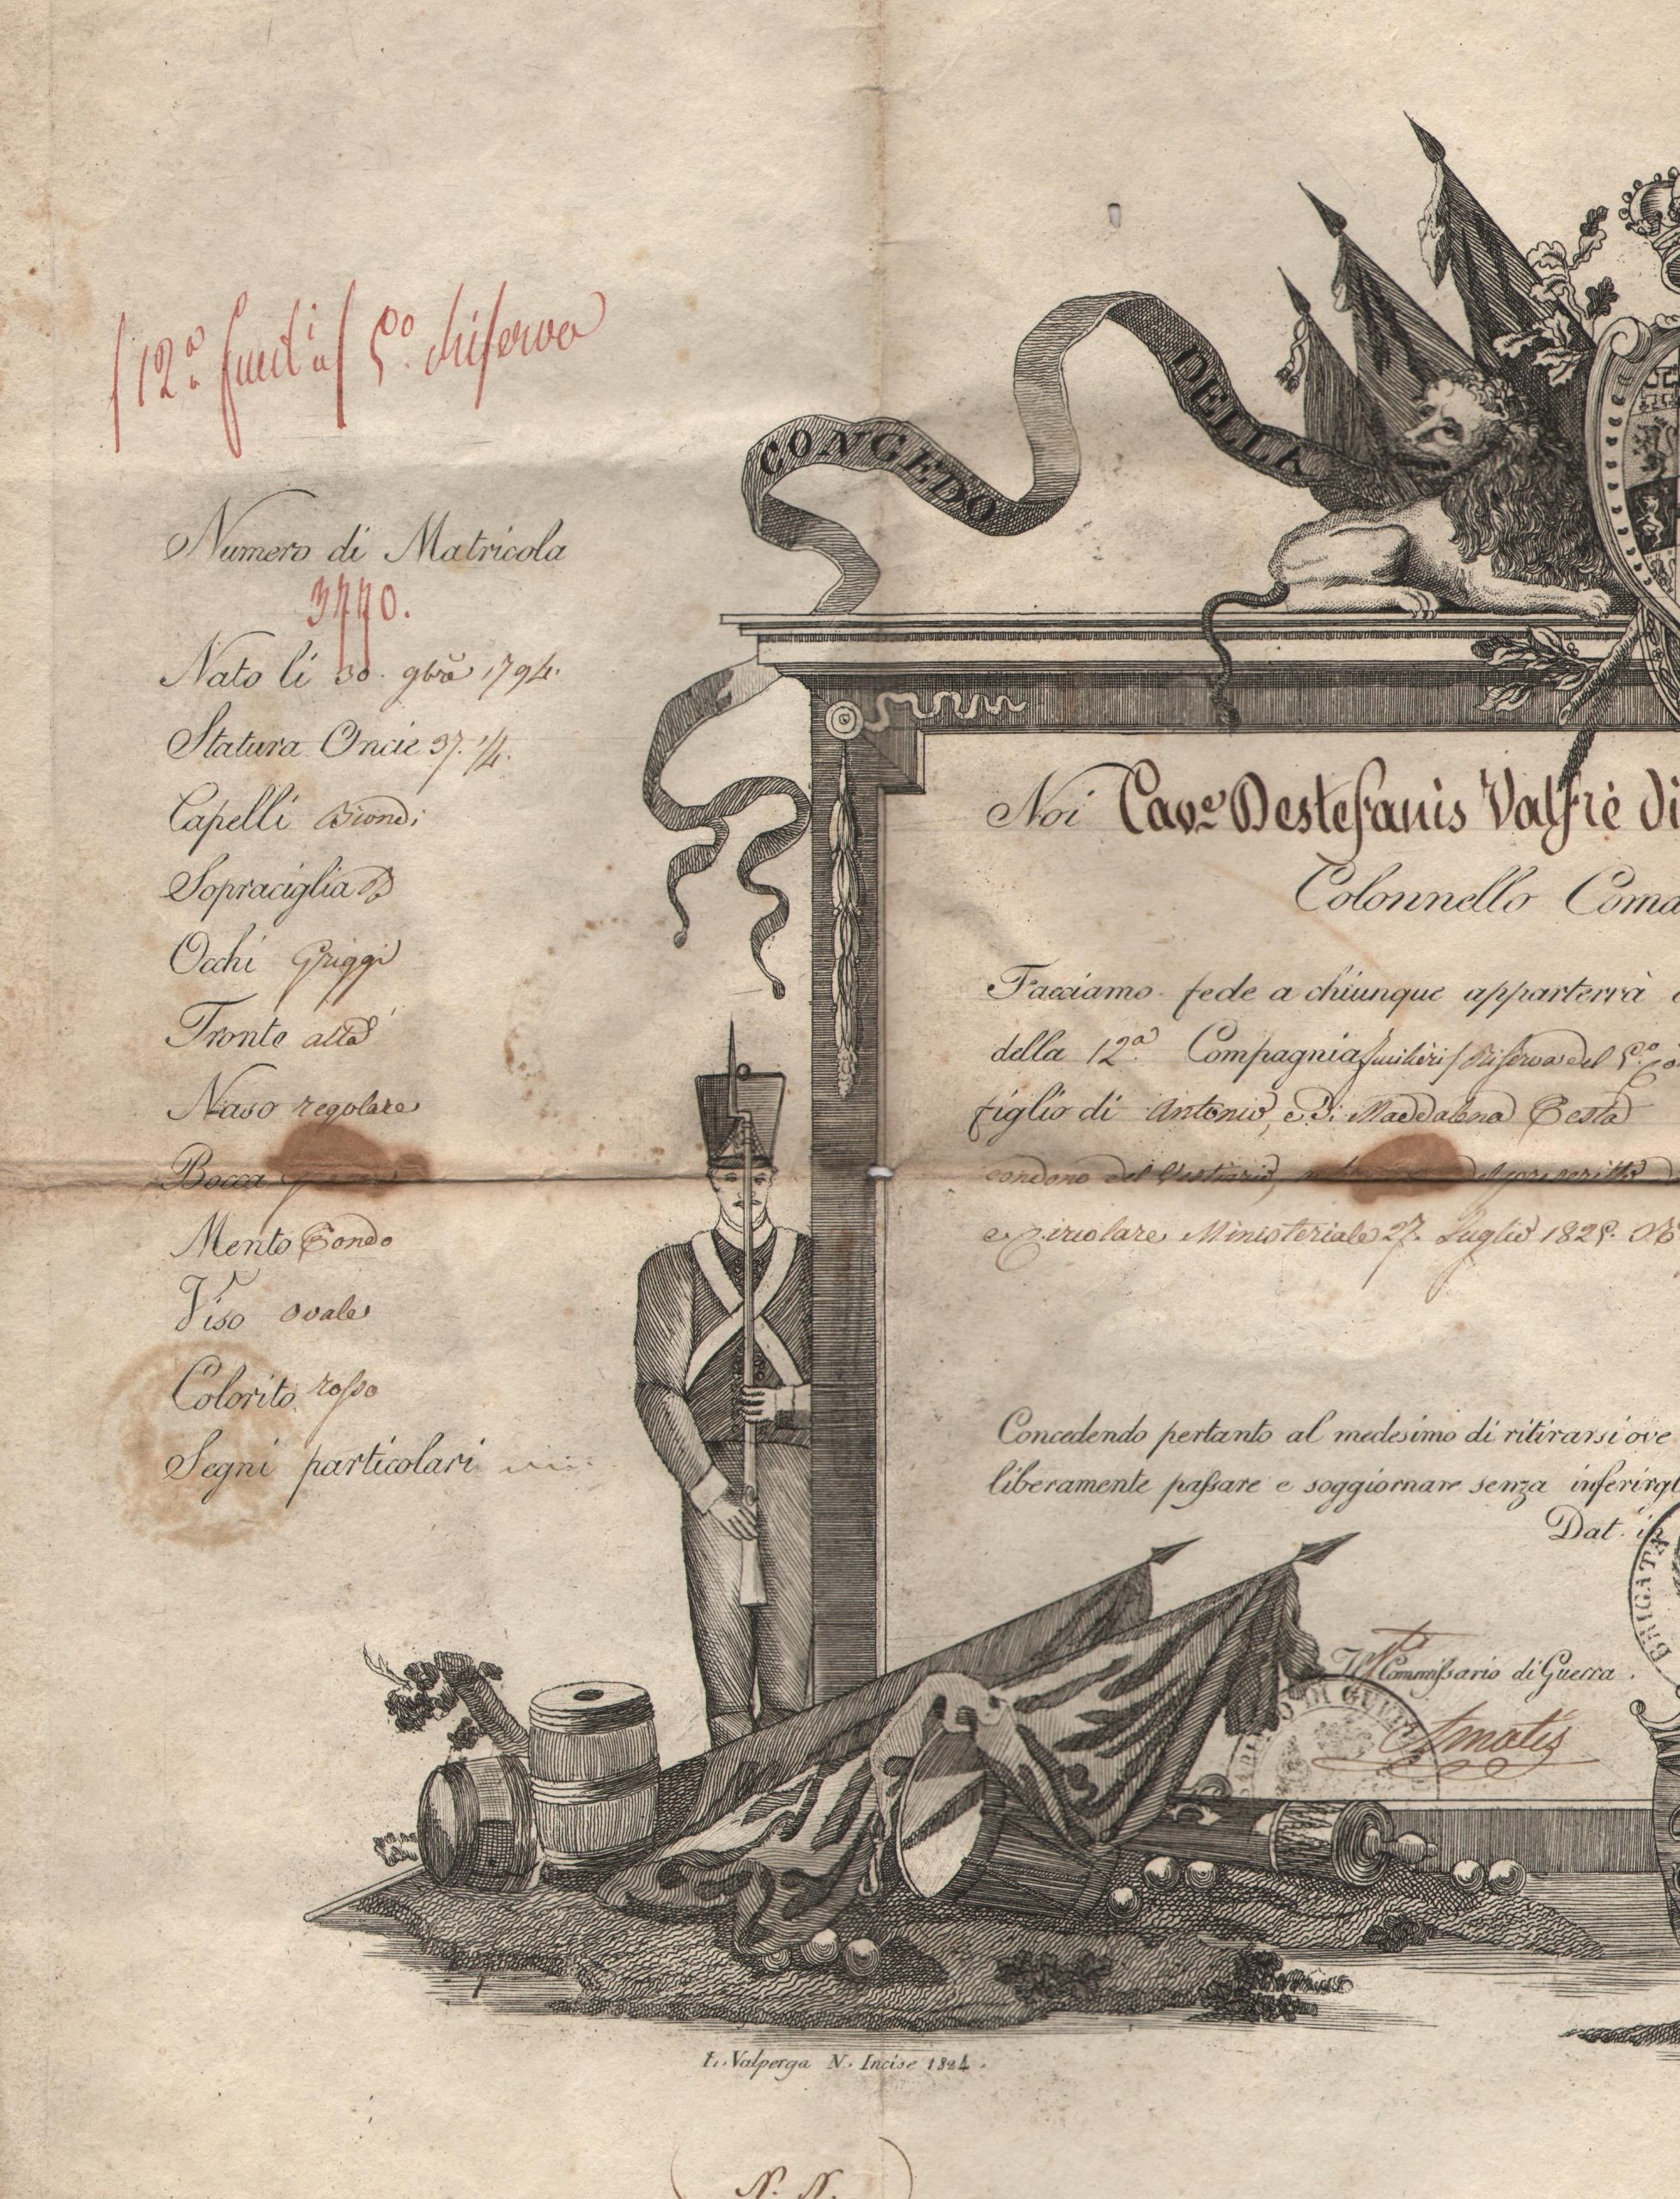 12.ª fucil.i 5.º Riserva
CONGEDO DELLA
Numero di Matricola
3770.
Nato li 30. 9bre 1794.
Statura Oncie 37. 1/4.
Capelli Biondi
Sopraciglia D
Occhi Griggi
Fronte alta
Naso regolare
Bocca
Mento Tondo
Viso ovale
Colorito rosso
Segni particolari
Noi Cav.e Destefanis Valfrè di
Colonnello Coma
Facciamo fede a chiunque apparterrà
della 12.ª Compagnia fucilieri Riserva del 5.º
figlio di Antonio, e di Maddalena Testa
condono del Vestiario, del prescritto
e Circolare Ministeriale 27. Luglio 1825.
Concedendo pertanto al medesimo di ritirarsi ove
liberamente passare e soggiornare senza inferirgl
Dat. in
BRIGATA
Il Commissario di Guerra.
DI GUERRA
Amatis
L. Valperga N. Incise 1824.
N. N.